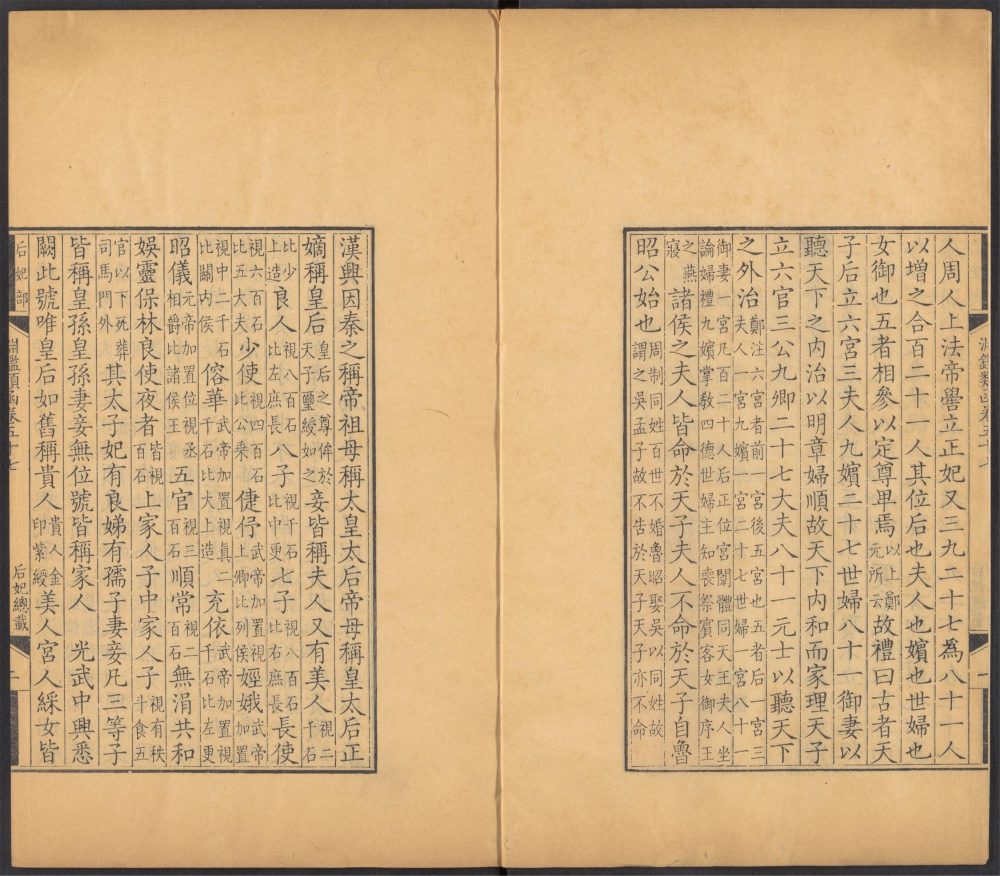 人周人上法帝嚳立正妃又三九二十七為八十一人
以增之合百二十一人其位后也夫人也嬪也世婦也
女御也五者相參以定尊卑焉以上鄭元所云故禮曰古者天
子后立六宮三夫人九嬪二十七世婦八十一御妻以
聽天下之內治以明章婦順故天下內和而家理天子
立六官三公九卿二十七大夫八十一元士以聽天下
之外治鄭注六宮者前一宮後五宮也五者后一宮三夫人一宮九嬪一宮二十七世婦一宮八十一
御妻一宮凡百二十人后正位閨體同天王夫人坐論婦禮九嬪掌教四德世婦主知喪祭賓客女御序王
之燕寢諸侯之夫人皆命於天子夫人不命於天子自魯
昭公始也周制同姓百世不婚魯昭娶吳以同姓故謂之吳孟子故不告於天子天子亦不命
淵鑑類函卷五十七
一
漢興因秦之稱帝祖母稱太皇太后帝母稱皇太后正
嫡稱皇后皇后之尊侔於天子璽綬如之妾皆稱夫人又有美人視二千石
比少上造良人視八百石比左庶長八子視千石比中更七子視八百石比右庶長長使
視六百石比五大夫少使視四百石比公乘倢伃武帝加置視上卿比列侯娙娥武帝加置
視中二千石比關內侯傛華武帝加置視真二千石比大上造充依武帝加置視千石比左更
昭儀元帝加置位視丞相爵比諸侯王五官視三百石順常視二百石無涓共和
娛靈保林良使夜者皆視百石上家人子中家人子視有秩斗食五
官以下死葬司馬門外其太子妃有良娣有孺子妻妾凡三等子
皆稱皇孫皇孫妻妾無位號皆稱家人　光武中興悉
闕此號唯皇后如舊稱貴人貴人金印紫綬美人宮人綵女皆
后妃部
淵鑑類函卷五十七
后妃總載
二